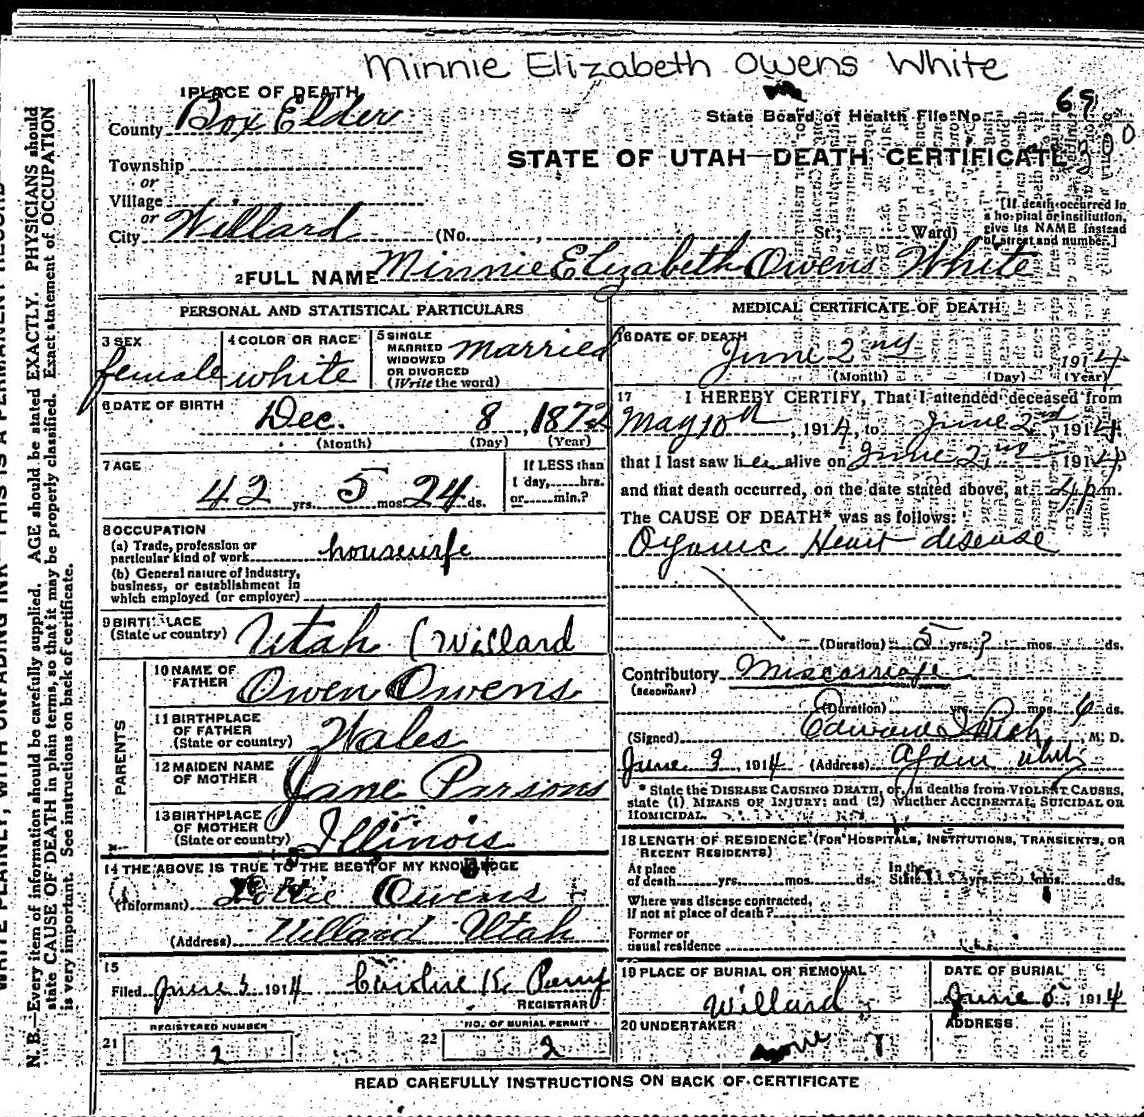 Minnie Elizabeth Owens White
1 PLACE OF DEATH
County Box Elder
State Board of Health File No. 69
200
STATE OF UTAH—DEATH CERTIFICATE
Township
or
Village
or
City Willard (No. , St.; Ward)
[If death occurred in a hospital or institution, give its NAME instead of street and number.]
2 FULL NAME Minnie Elizabeth Owens White
PERSONAL AND STATISTICAL PARTICULARS
3 SEX female
4 COLOR OR RACE white
5 SINGLE MARRIED WIDOWED OR DIVORCED (Write the word) married
6 DATE OF BIRTH
Dec. 8, 187
(Month) (Day) (Year)
7 AGE
42 yrs. 5 mos. 24 ds.
If LESS than 1 day,......hrs. or......min.?
8 OCCUPATION
(a) Trade, profession or particular kind of work housewife
(b) General nature of industry, business, or establishment in which employed (or employer)
9 BIRTHPLACE
(State or country) Utah (Willard
PARENTS
10 NAME OF FATHER Owen Owens
11 BIRTHPLACE OF FATHER (State or country) Wales
12 MAIDEN NAME OF MOTHER Jane Parsons
13 BIRTHPLACE OF MOTHER (State or country) Illinois
14 THE ABOVE IS TRUE TO THE BEST OF MY KNOWLEDGE
(Informant) Lottie Owens
(Address) Willard Utah
15
Filed June 3, 1914 Caroline K. Perry
REGISTRAR
21 REGISTERED NUMBER 2
22 NO. OF BURIAL PERMIT 2
MEDICAL CERTIFICATE OF DEATH
16 DATE OF DEATH
June 2nd 1914
(Month) (Day) (Year)
17 I HEREBY CERTIFY, That I attended deceased from
May 10th, 1914, to June 2nd 1914,
that I last saw her alive on June 2nd 1914,
and that death occurred, on the date stated above, at 4 p.m.
The CAUSE OF DEATH* was as follows:
Organic Heart disease
(Duration) 5 yrs.? mos. ds.
Contributory Miscarriage
(SECONDARY)
(Duration) yrs. mos. 6 ds.
(Signed) Edward I Rich, M. D.
June 3, 1914 (Address) Ogden Utah
* State the DISEASE CAUSING DEATH, or, in deaths from VIOLENT CAUSES, state (1) MEANS OF INJURY; and (2) whether ACCIDENTAL, SUICIDAL OR HOMICIDAL.
18 LENGTH OF RESIDENCE (FOR HOSPITALS, INSTITUTIONS, TRANSIENTS, OR RECENT RESIDENTS)
At place of death yrs. mos. ds. In the State yrs. mos. ds.
Where was disease contracted, if not at place of death?
Former or usual residence
19 PLACE OF BURIAL OR REMOVAL
Willard
DATE OF BURIAL
June 5, 1914
20 UNDERTAKER
none
ADDRESS
READ CAREFULLY INSTRUCTIONS ON BACK OF CERTIFICATE
WRITE PLAINLY, WITH UNFADING INK—THIS IS A PERMANENT RECORD
N. B.—Every item of information should be carefully supplied. AGE should be stated EXACTLY. PHYSICIANS should
state CAUSE OF DEATH in plain terms, so that it may be properly classified. Exact statement of OCCUPATION
is very important. See instructions on back of certificate.